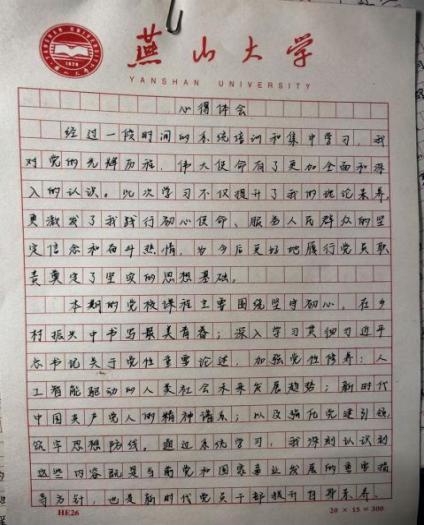 燕山大学
YANSHAN UNIVERSITY
心得体会
经过一段时间的系统培训和集中学习，我
对党的光辉历程、伟大使命有了更加全面和深
入的认识。此次学习不仅提升了我的理论素养，
更激发了我践行初心使命、服务人民群众的坚
定信念和奋斗热情，为今后更好地履行党员职
责奠定了坚实的思想基础。
本期的党校课程主要围绕坚守初心，在乡
村振兴中书写最美青春；深入学习贯彻习近平
总书记关于党性重要论述，加强党性修养；人
工智能驱动的人类社会未来发展趋势；新时代
中国共产党人的精神谱系；以及强化党建引领
筑牢思想防线。通过系统学习，我深刻认识到
这些内容既是当前党和国家事业发展的重要指
导方针，也是新时代党员干部提升自身素养、
HE26
20 × 15 = 300